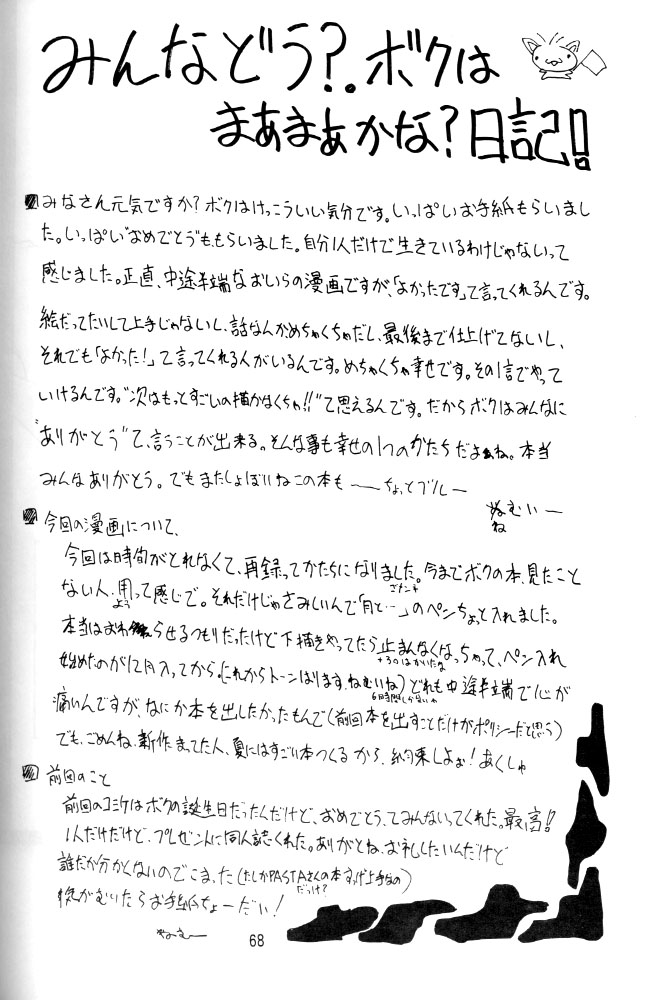 みんなどう？。ボクは
まあまあかな？日記!!
みなさん元気ですか？ボクはけっこういい気分です。いっぱいお手紙もらいまし
た。いっぱい"おめでとう"ももらいました。自分1人だけで生きているわけじゃないって
感じました。正直、中途半端なおいらの漫画ですが、「よかったです」って言ってくれるんです。
絵だってたいして上手じゃないし、話なんかめちゃくちゃだし、最後まで仕上げてないし、
それでも「よかった！」て言ってくれる人がいるんです。めちゃくちゃ幸せです。その1言でやって
いけるんです。"次はもっとすごいの描かなくちゃ!!"て思えるんです。だからボクはみんなに
"ありがとう"て、言うことが出来る。そんな事も幸せの1つのかたちだよぉね。本当
みんなありがとう。でもまたしょぼいねこの本も ――ちょっとブルー
ねむいー
ね
今回の漫画について、
今回は時間がとれなくて、再録ってかたちになりました。今までボクの本、見たこと
ない人、用って感じで。それだけじゃさみしいんで「月と…」のペンちょっと入れました。
よう
本当はおわらせるつもりだったけど下描きやってたら止まんなくなっちゃって、ペン入れ
始めたのが12月入ってから。(これからトーンはります、ねむいね)どれも中途半端で心が
6時間しかないや
痛いんですが、なにか本を出したかったもんで(前回本を出すことだけがポリシーだと思う)
でも、ごめんね、新作まってた人、夏にはすごい本つくるから、約束しよぉ！あくしゅ
前回のこと
前回のコミケはボクの誕生日だったんだけど、おめでとう、てみんないってくれた。最高!!
1人だけだけど、プレゼントに同人誌くれた。ありがとね、お礼したいんだけど
誰だか分かんないのでこまった(たしかPASTAさんの本すっげえ上手なの)
だっけ？
気がむいたらお手紙ちょーだい！
68